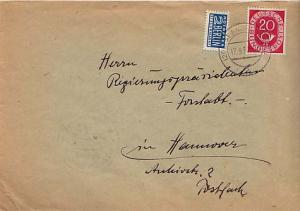 NOTOPFER
2 BERLIN
STEUERMARKE
20
Herrn
Regierungspräsidenten
- Forstabt. -
in Hannover
Archivstr. 2
Postfach